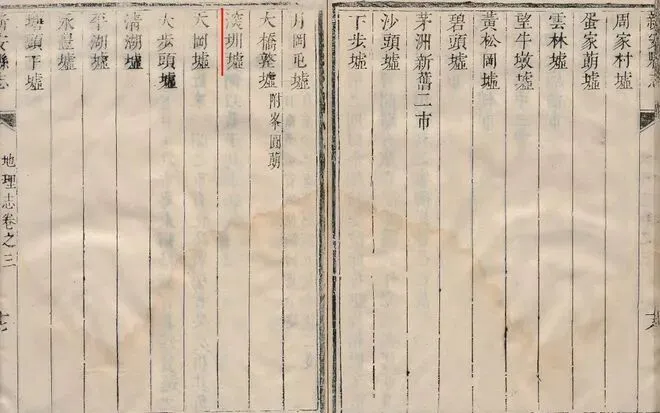 新安縣志
周家村墟
蛋家蓢墟
雲林墟
望牛墩墟
黃松岡墟
碧頭墟
茅洲新舊二市
沙頭墟
下步墟
月岡屯墟
大橋墪墟 附峯園蓢
深圳墟
天岡墟
大步頭墟
清湖墟
平湖墟
永豐墟
塘頭下墟
新安縣志
地理志卷之三